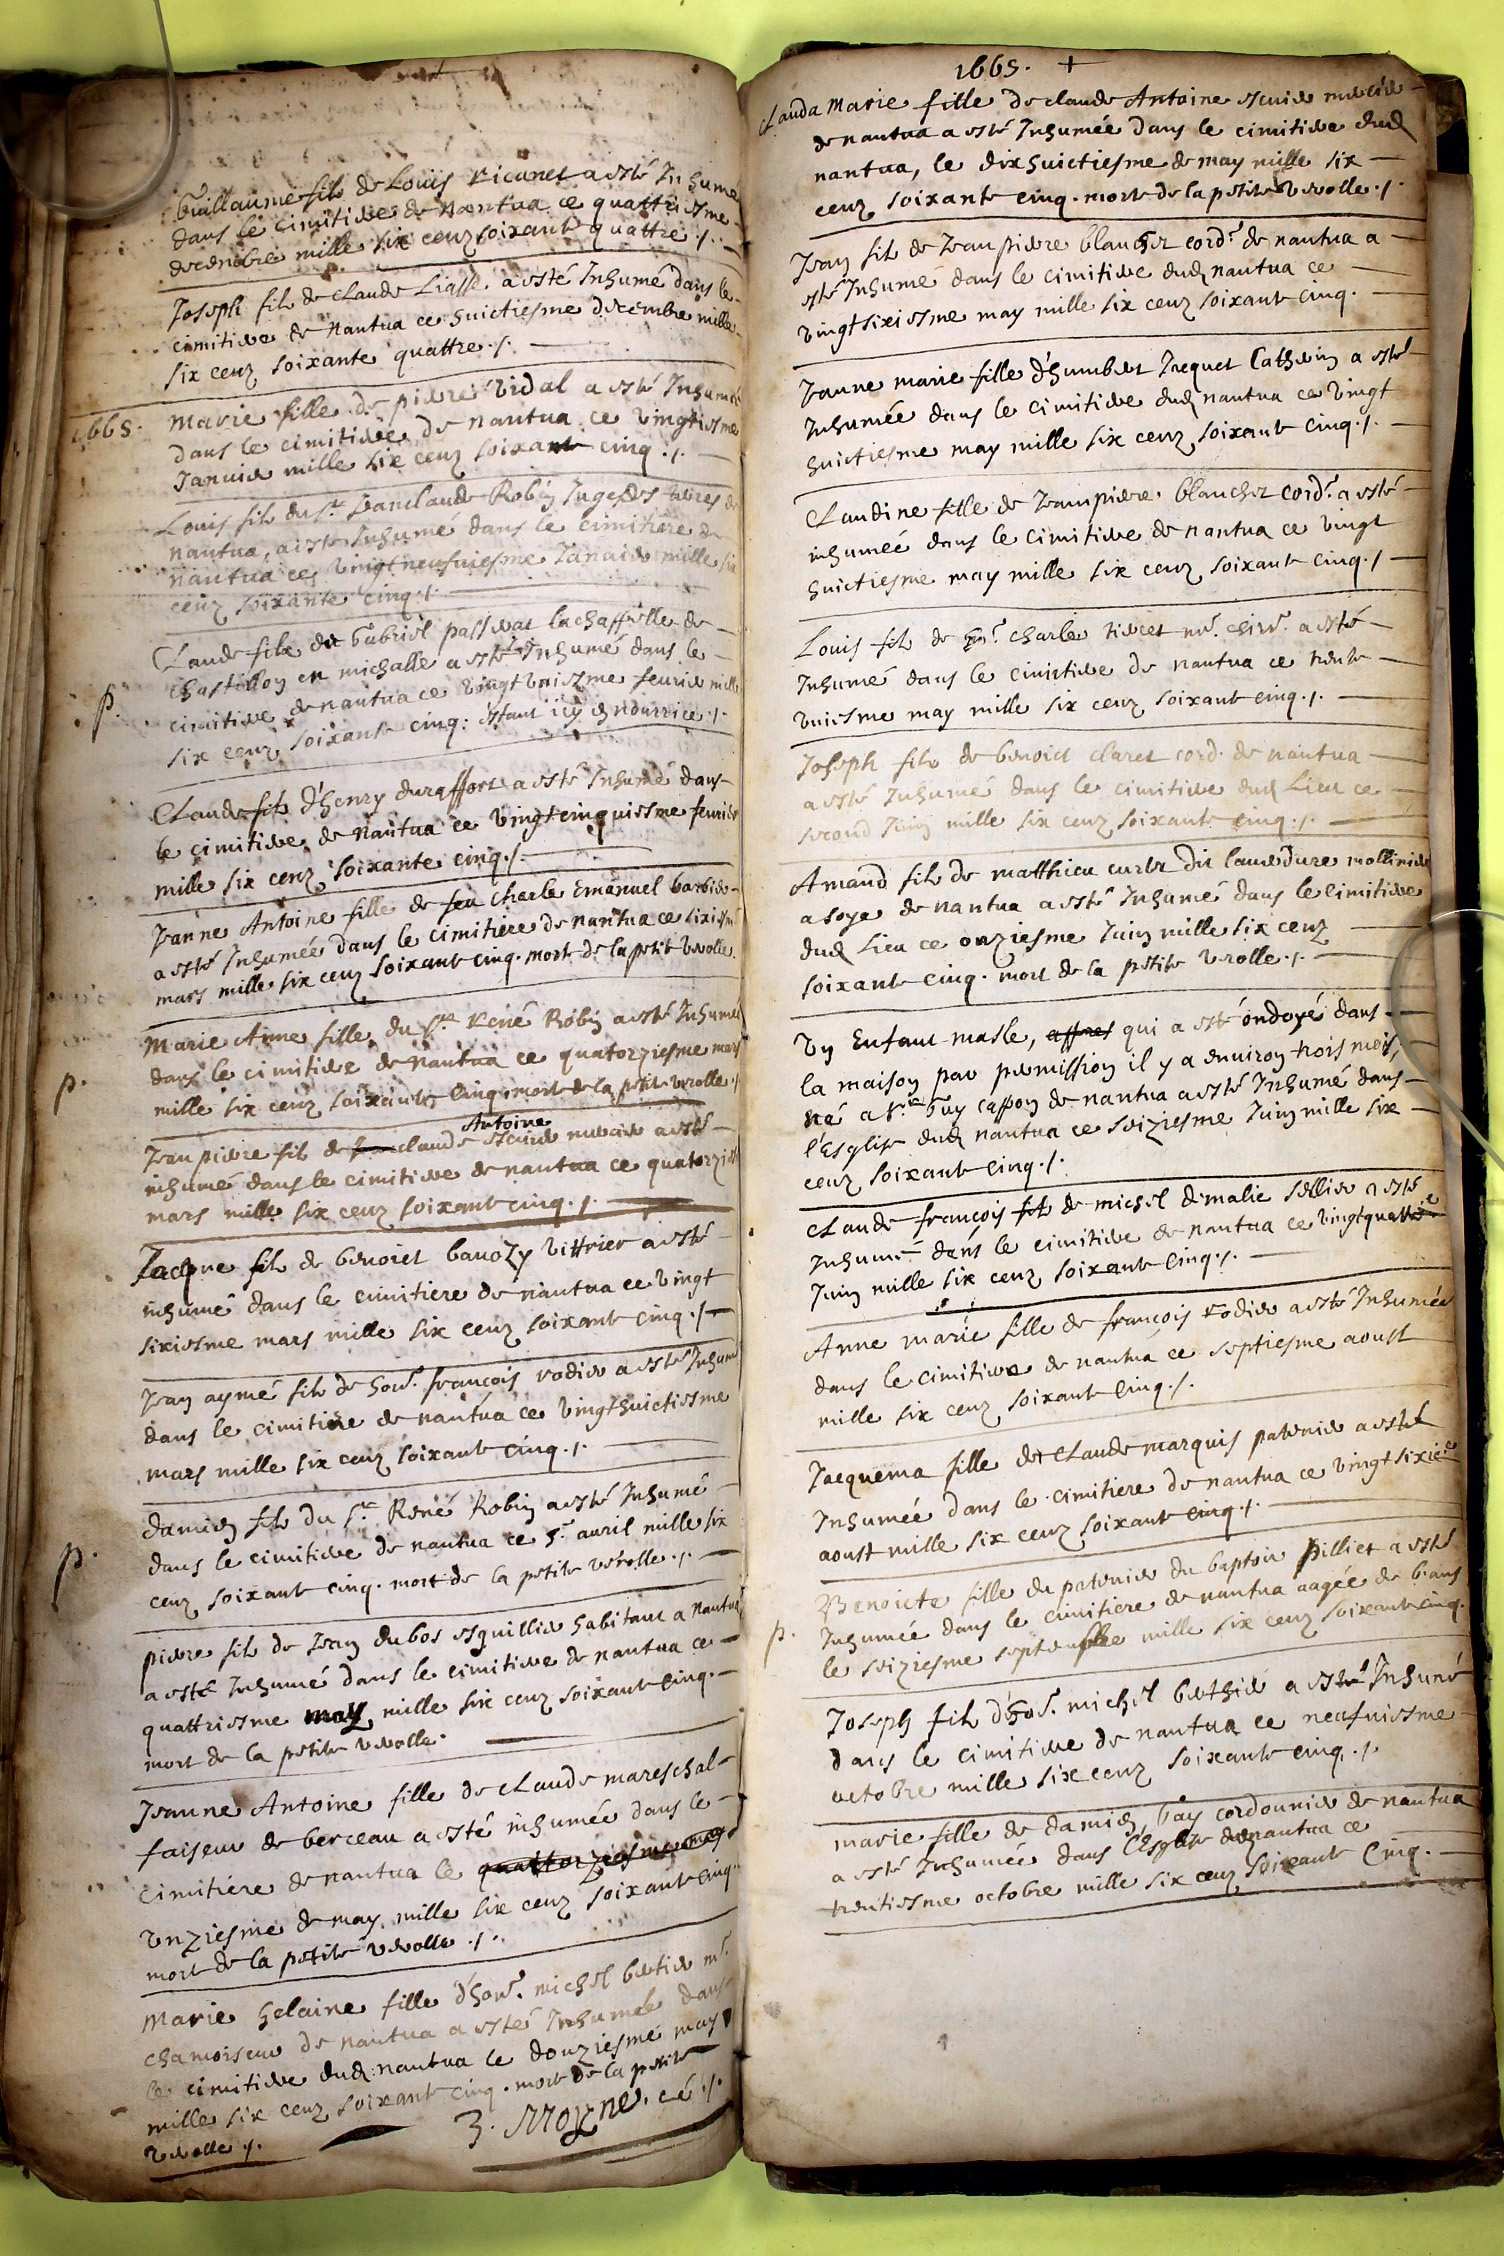 Guillaume fils de Louis Ricanet a esté Inhumé
dans le cimitiere de Nantua ce quattriesme
decembre mille six cenz soixante quattre ./.
Joseph fils de Claude Liasse a esté Inhumé dans le
cimitiere de Nantua ce huictiesme decembre mille
six cenz soixante quattre ./.
1665.
Marie fille de pierre vidal a esté Inhumée
dans le cimitiere de nantua ce vingtiesme
Janvier mille six cenz soixante cinq ./.
Louis fils du Sr. Janclaude Robin Juge des terres de
nantua, a esté Inhumé dans le cimitiere de
nantua ce vingt neufuiesme Januier mille six
cenz soixante cinq ./.
Claude fils de Gabriel passerat lachappelle de
Chastillon en michaille a esté Inhumé dans le
p.
cimitiere de nantua ce vingt vniesme feurier mille
six cenz soixante cinq. estant icy en nourrice ./.
Claude fils d'henry duraffort a esté Inhumé dans
le cimitiere de Nantua ce vingtcinquiesme feurier
mille six cenz soixante cinq ./.
Jeanne Antoine fille de feu Charle Emanuel barbier
a esté Inhumée dans le cimitiere de nantua ce sixiesme
mars mille six cenz soixante cinq. mort de la petite verolle.
Marie Anne fille du Sr. René Robin a esté Inhumée
p.
dans le cimitiere de Nantua ce quatorziesme mars
mille six cenz soixante cinq, mort de la petite verolle ./.
Antoine
Jean pierre fils de claude escuier mercier a esté
inhumé dans le cimitiere de nantua ce quatorzies
mars mille six cenz soixante cinq ./.
Jacque fils de benoict bavozy vittrier a esté
inhumé dans le cimitiere de nantua ce vingt
sixiesme mars mille six cenz soixante cinq ./.
Jean aymé fils de hon. françois rodier a esté Inhumé
dans le cimitiere de nantua ce vingthuictiesme
mars mille six cenz soixante cinq ./.
damien fils du Sr. René Robin a esté Inhumé
p.
dans le cimitiere de nantua ce 5e auril mille six
cenz soixante cinq. mort de la petite verolle ./.
pierre fils de Jean dubos esguillier habitant a nantua
a esté Inhumé dans le cimitiere de nantua ce
quattriesme may mille six cenz soixante cinq.
mort de la petite verolle.
Jeanne Antoine fille de claude mareschal
faiseur de berceau a esté inhumée dans le
cimitiére de nantua le quattorziesme may
vnziesme de may mille six cenz soixante cinq.
mort de la petite verolle ./.
Marie helaine fille d'hon. michel bertier mr.
chamoiseur de nantua a estée Inhumée dans
le cimitiere dud nantua le douziesme may
mille six cenz soixante cinq. mort de la petite
verolle ./. Moyne. cé ./.
1665. +
Clauda Marie fille de claude Antoine escuier mercier
de nantua a esté Inhumée dans le cimitiere dud
nantua, le dixhuictiesme de may mille six
cenz soixante cinq. morte de la petite verolle ./.
Jean fils de Jean pierre blanchet cord. de nantua a
esté Inhumé dans le cimitiere dud nantua ce
vingtsixiesme may mille six cenz soixante cinq.
Jeanne marie fille d'humbert Jacquet Catherin a esté
Inhumée dans le cimitiere dud nantua ce vingt
huictiesme may mille six cenz soixante cinq ./.
Claudine fille de Jeanpierre blanchet cord. a esté
inhumée dans le cimitiere de nantua ce vingt
huictiesme may mille six cenz soixante cinq ./.
Louis fils de charle mr. chir. a esté
Inhumé dans le cimitiere de nantua ce trente
vniesme may mille six cenz soixante cinq ./.
Joseph fils de benoict claret cord. de nantua
a esté Inhumé dans le cimitiere dud Lieu ce
second Juin mille six cenz soixante cinq ./.
Amand fils de matthieu curlet dit laverdure mollinier
a soye de nantua a esté Inhumé dans le cimitiere
dud Lieu ce onziesme Juin mille six cenz
soixante cinq. mort de la petite verolle ./.
Vn Enfant masle, appres qui a esté ondoyé dans
la maison par permission il y a environ trois mois,
né a Sr. Guy cappon de nantua a esté Inhumé dans
l'Esglise dud nantua ce seiziesme Juin mille six
cenz soixante cinq ./.
Claude françois fils de michel demalie sellier a esté
Inhumé dans le cimitiere de nantua ce vingtquattrie
Juin mille six cenz soixante cinq ./.
Anne marie fille de françois rodier a esté Inhumée
dans le cimitiere de nantua ce septiesme aoust
mille six cenz soixante cinq ./.
Jacquema fille de Claude marquis patenier a esté
Inhumée dans le cimitiere de nantua ce vingtsixie
aoust mille six cenz soixante cinq ./.
Benoicte fille du patenier du baptoir pilliet a esté
p.
Inhumée dans le cimitiere de nantua aagée de 6 ans
le seiziesme septembre mille six cenz soixante cinq.
Joseph fils d'hon. michel berthier a esté Inhumé
dans le cimitiere de nantua ce neufuiesme
octobre mille six cenz soixante cinq ./.
marie fille de damien gay cordonnier de nantua
a esté Inhumée dans l'Esglise de nantua ce
trentiesme octobre mille six cenz soixante cinq.